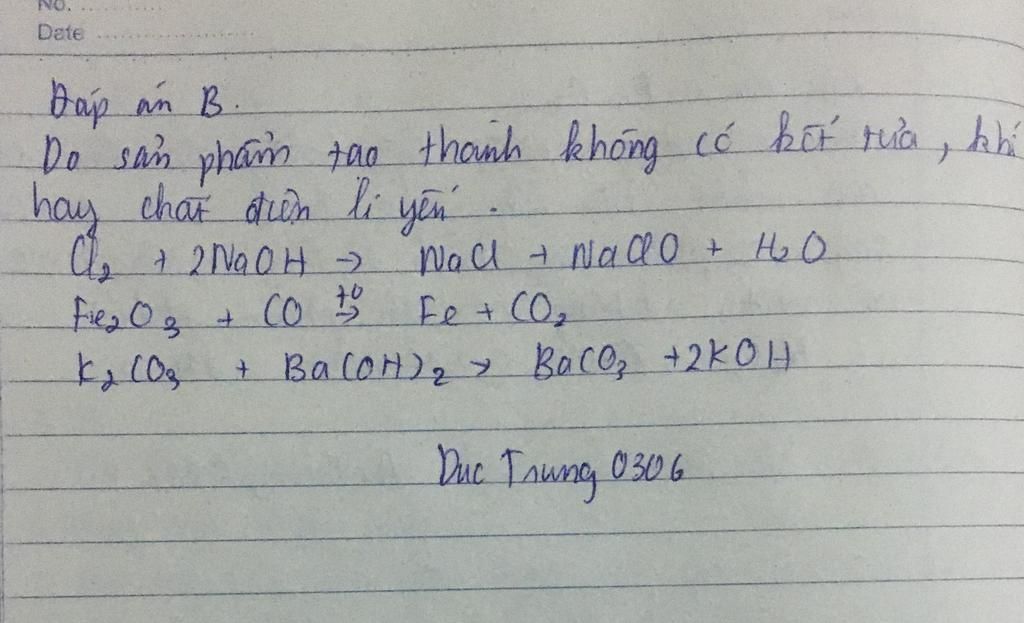 No. ............
Date ........................
Đáp án B.
Do sản phẩm tạo thành không có kết tủa, khí
hay chất điện li yếu.
Cl₂ + 2NaOH → NaCl + NaClO + H₂O
Fe₂O₃ + CO t⁰→ Fe + CO₂
K₂CO₃ + Ba(OH)₂ → BaCO₃ + 2KOH
Duc Trung 0306